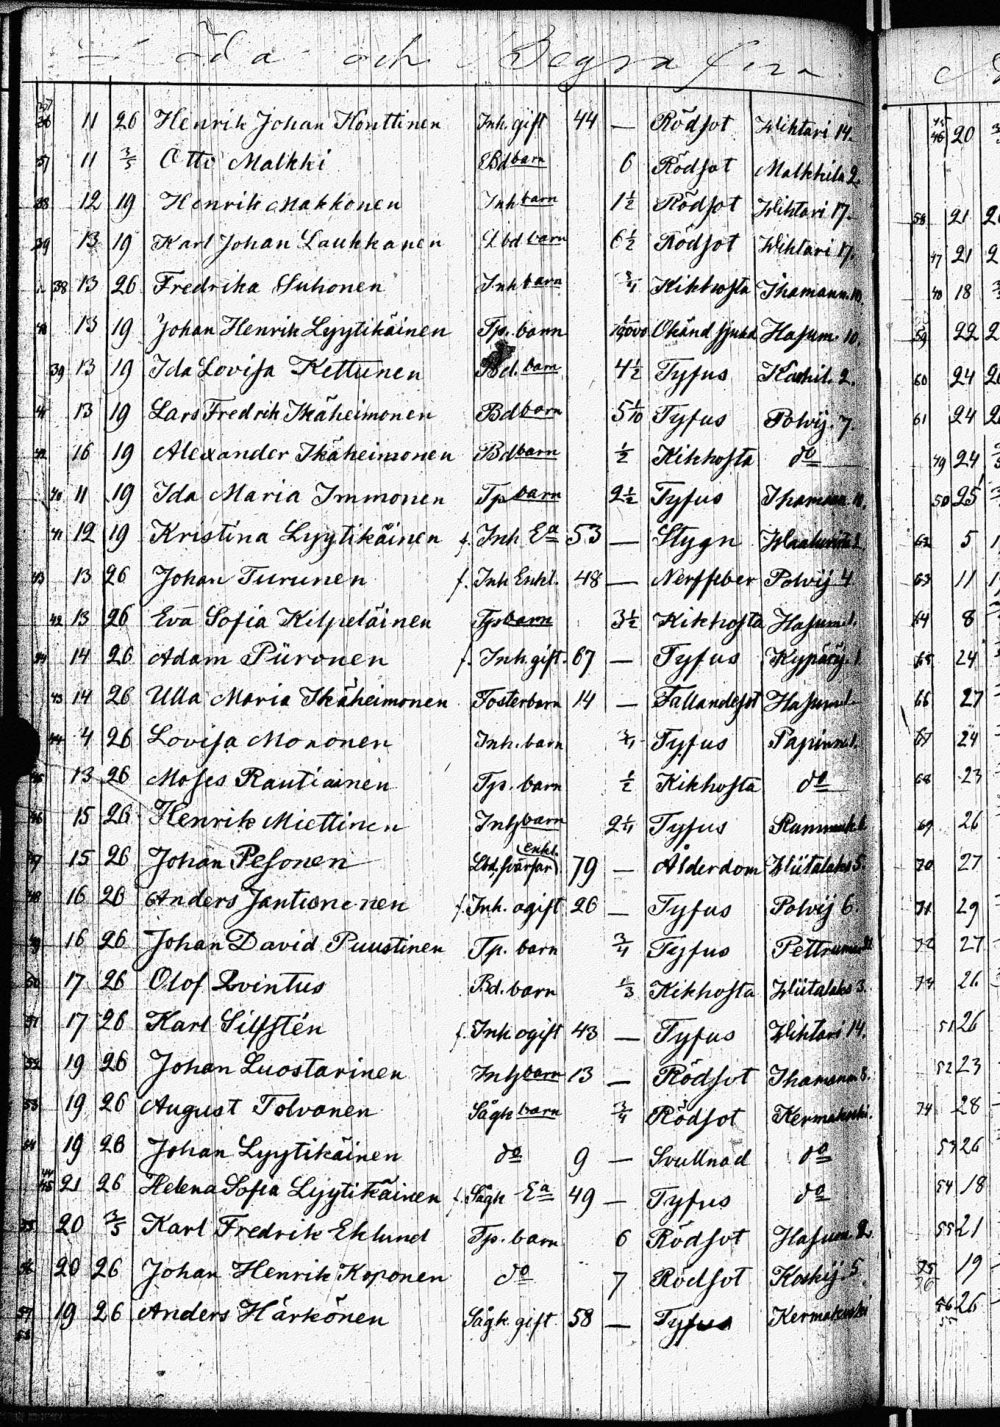 Döda och Begrafna
11 26 Henrik Johan Konttinen Inh. gift 44 — Rödsot Wihtari 14.
37 11 3/5 Otto Malkki Bd barn 6 Rödsot Malkkila 2
38 12 19 Henrik Makkonen Inh barn 1½ Rödsot Wihtari 17.
39 13 19 Karl Johan Laukkanen barn 6½ Rödsot Wihtari 17.
38 13 26 Fredrika Suhonen Inh barn Kikhosta Ihamann. 10.
40 13 19 Johan Henrik Lyytikäinen Tp. barn Okänd sjukd Hasum. 10.
39 13 19 Ida Lovisa Kettunen Bd. barn 4½ Tyfus 2.
41 13 19 Lars Fredrik Ikäheimonen Bd barn 5 1/10 Tyfus Polvij. 7.
42 16 19 Alexander Ikäheimonen Bd barn ½ Kikhosta do
40 11 19 Ida Maria Immonen Tp barn 2½ Tyfus
41 12 19 Kristina Lyytikäinen f. Inh Ea 53 — Stygn
43 13 26 Johan Turunen f. Inh Enkl. 48 — Nerffeber Polvij 4
42 13 26 Eva Sofia Kilpeläinen Tp barn 3½ Kikhosta Hasum 1.
44 14 26 Adam Piironen f. Inh. gift. 67 — Tyfus 1
43 14 26 Ulla Maria Ikäheimonen Fosterbarn 14 — Fallandesot
44 4 26 Lovisa Mononen Inh. barn ¾ Tyfus Papinn. 1.
45 13 26 Moses Rautiainen Tp. barn ½ Kikhosta do
46 15 26 Henrik Miettinen Inh barn 2¼ Tyfus
47 15 26 Johan Pesonen enkl. 79 — Ålderdom Wiitalaks 5.
48 16 26 Anders Jantunenen f. Inh. ogift 26 — Tyfus Polvij 6.
49 16 26 Johan David Puustinen Tp. barn ¾ Tyfus
50 17 26 Olof Qvintus Bd. barn ⅓ Kikhosta Wiitalaks 3.
51 17 26 Karl Silfstén f. Inh ogift 43 — Tyfus Wihtari 14.
52 19 26 Johan Luostarinen Inh barn 13 — Rödsot Ihamann 8.
53 19 26 August Tolvanen Sågk barn ¾ Rödsot Kermakoski.
54 19 26 Johan Lyytikäinen do 9 — Svullnad do
21 26 Helena Sofia Lyytikäinen f. Sågk Ea 49 — Tyfus do
55 20 3/5 Karl Fredrik Eklund Tp. barn 6 Rödsot Hasum 2.
56 20 26 Johan Henrik Koponen do 7 Rödsot Koskij. 5.
57 19 26 Anders Härkönen Sågk gift 58 — Tyfus Kermakoski
46 20
58 21
47 21
18
59 22
60 24
61 24
49 24
50 25
62 5
63 11
64 8
65 24
66 27
67 24
68 23
69 26
70 27
71 29
72 27
26
51 26
52 23
74 28
53 26
54 18
55 21
75 19
56 26